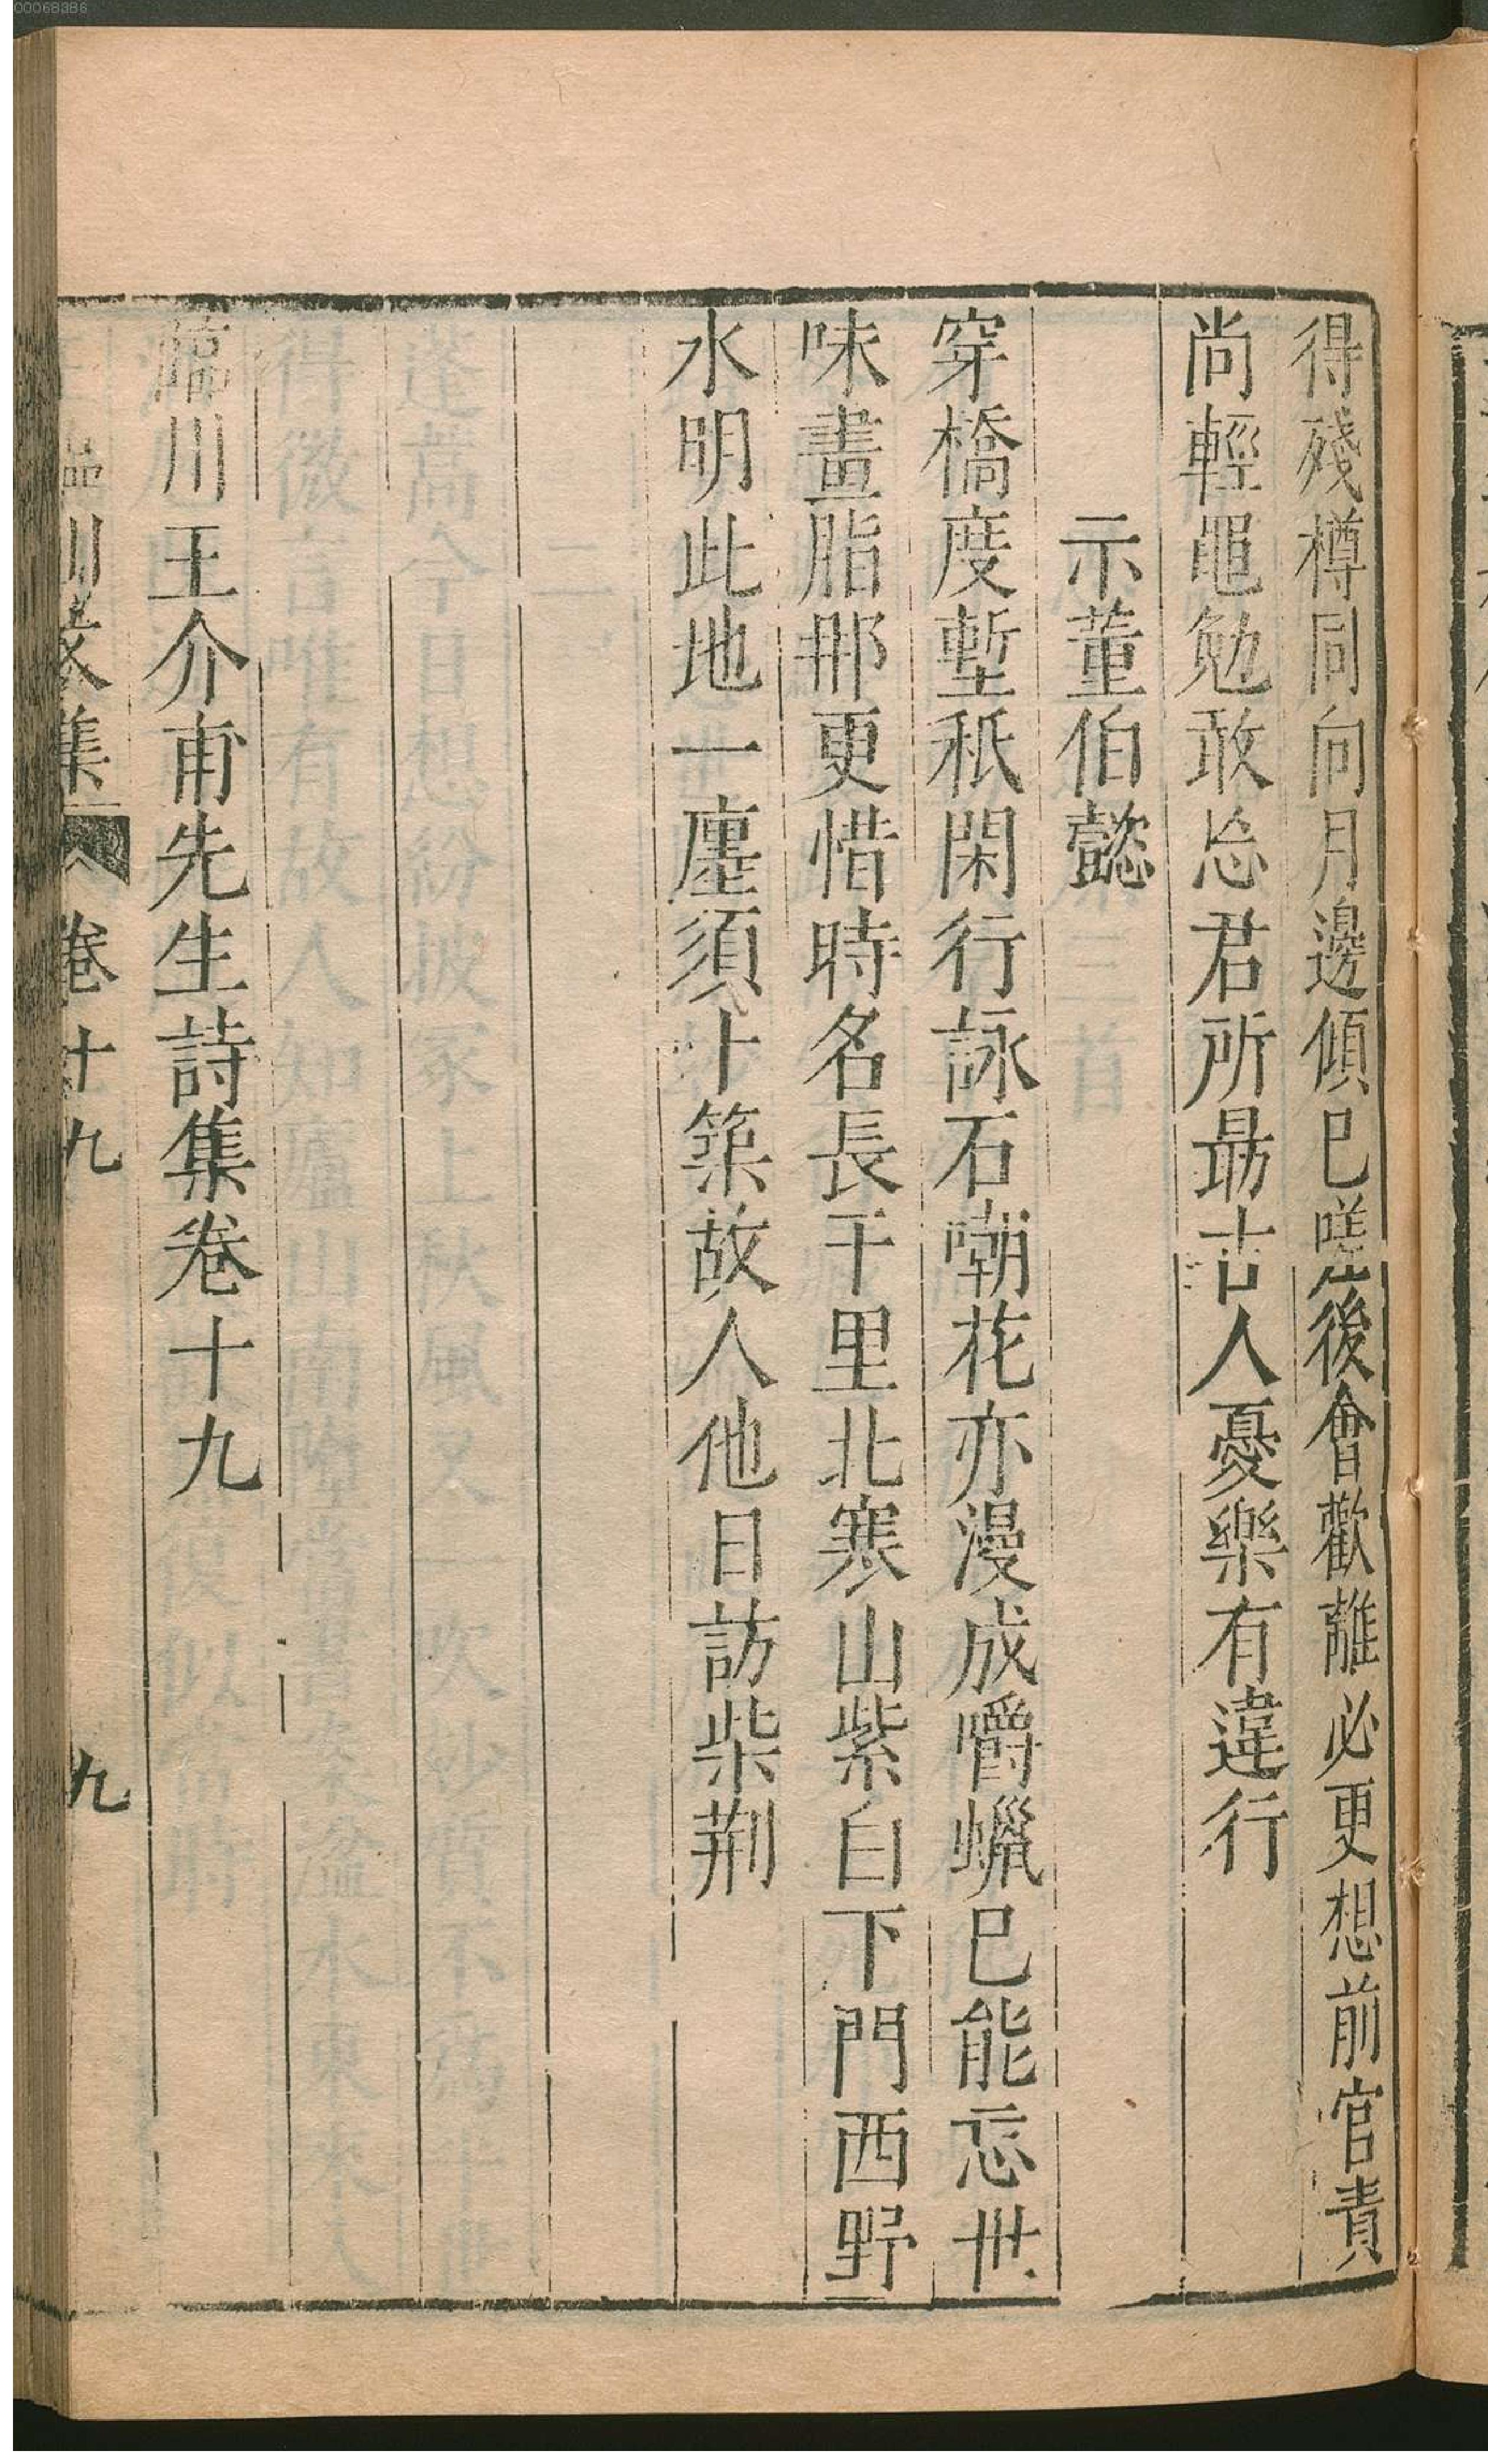 得殘樽同向月邊傾已嗟後會歡離必更想前官責
尚輕黽勉敢忘君所勗古人憂樂有違行
示董伯懿
穿橋度塹秖閑行詠石嘲花亦漫成嚼蠟已能忘世
味畫脂那更惜時名長干里北寒山紫白下門西野
水明此地一廛須卜築故人他日訪柴荆
臨川王介甫先生詩集卷十九
臨川文集 卷十九 九
00068386